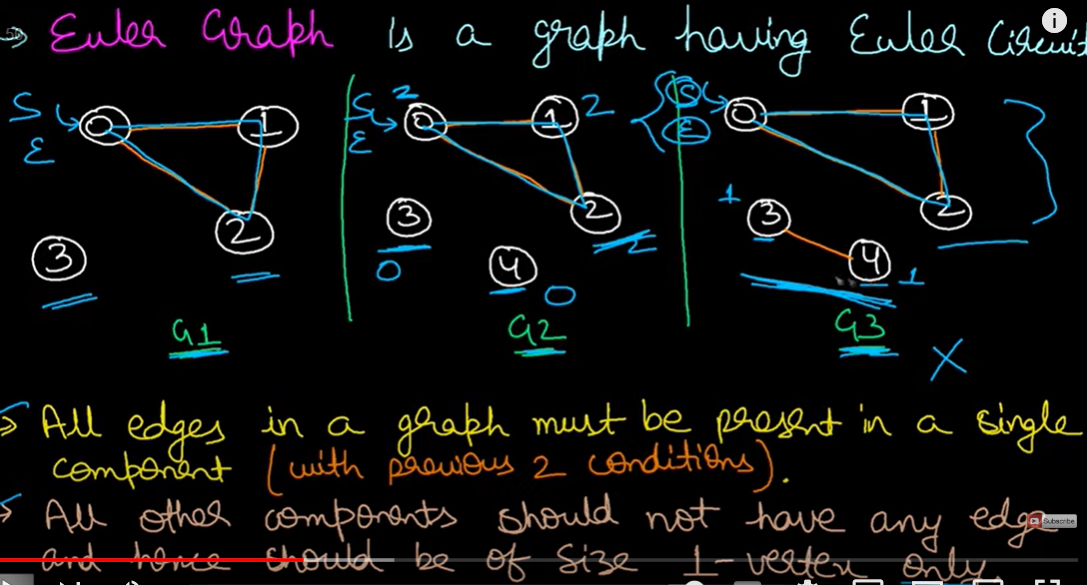 → Euler Graph is a graph having Euler Circuit
S 0 1
E 2
3
G1
2 S 0 1 2
E 3 2 2
0 4 0
G2
S 0 1
E
1 3 2
4 1
G3 X
→ All edges in a graph must be present in a single
component (with previous 2 conditions).
→ All other components should not have any edge
and hence should be of size 1-vertex only
Subscribe